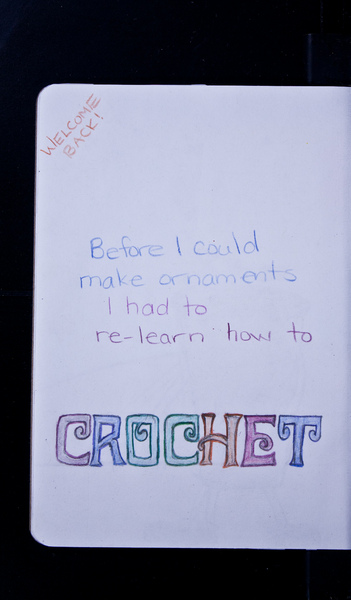 WELCOME
BACK!
Before I could
make ornaments
I had to
re-learn how to
CROCHET